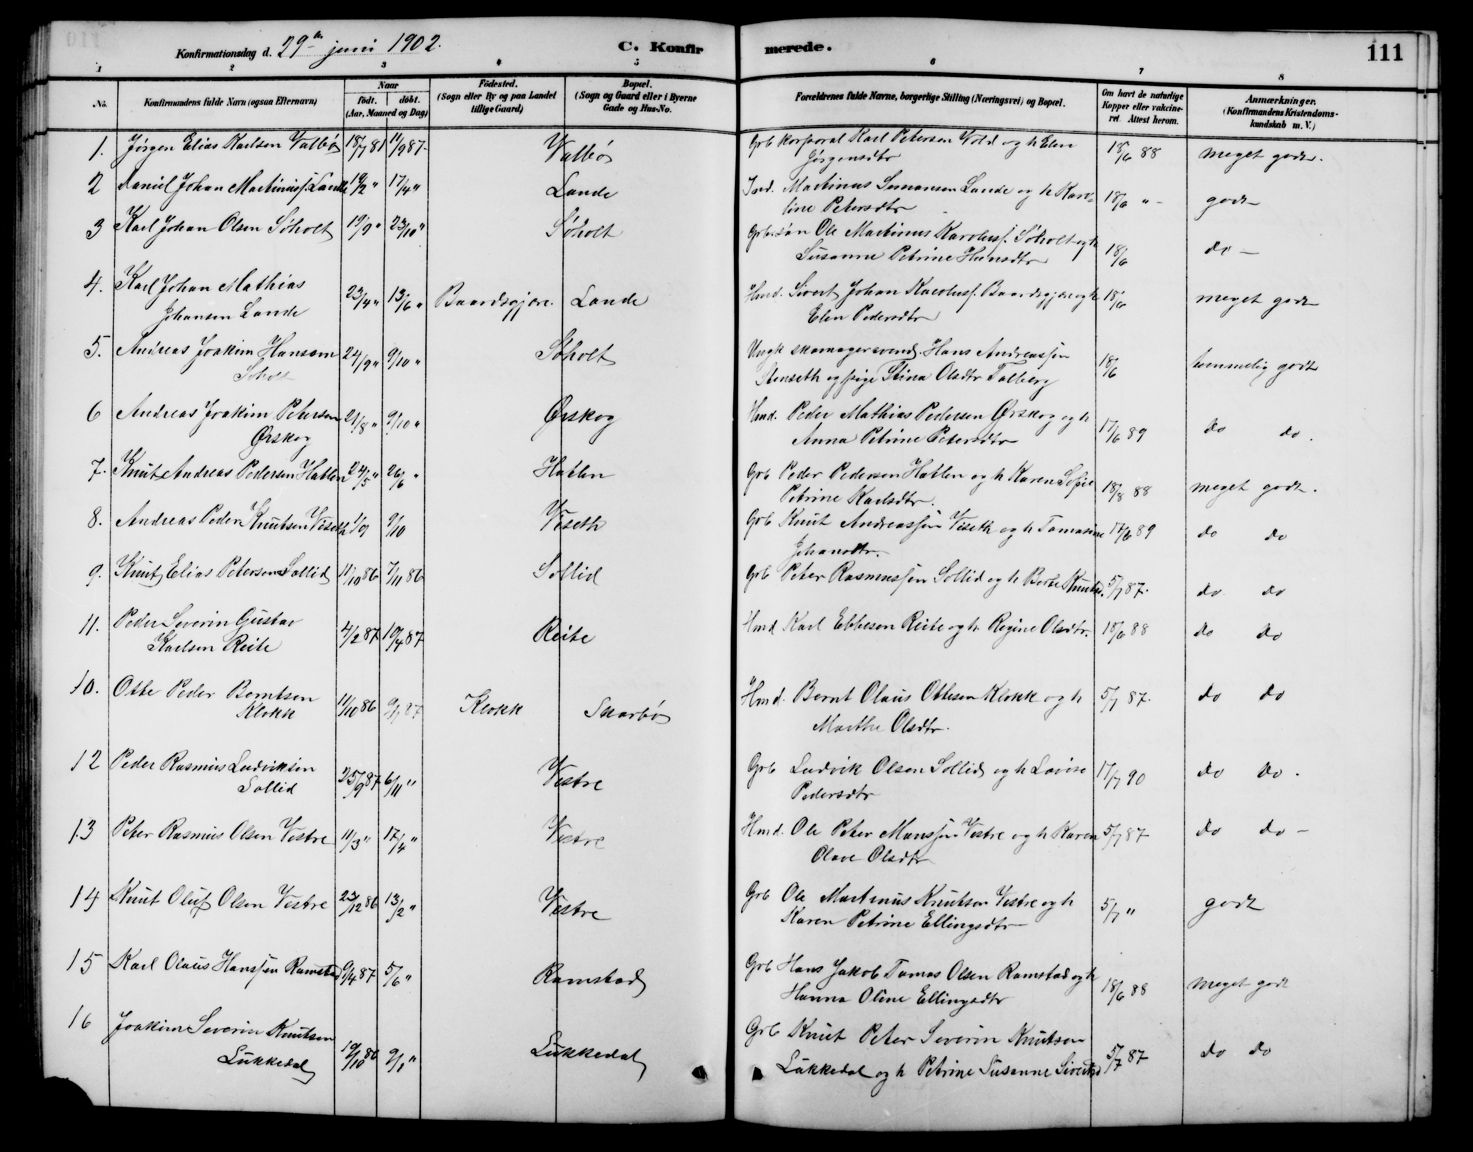 Konfirmationsdag d. 29de juni 1902. C. Konfirmerede. 111
1 2 3 4 5 6 7 8
No. Konfirmandens fulde Navn (ogsaa Efternavn)
Naar
født. døbt.
(Aar, Maaned og Dag)
Fødested.
(Sogn eller By og paa Landet
tillige Gaard)
Bopæl.
(Sogn og Gaard eller i Byerne
Gade og Hus-No.
Forældrenes fulde Navne, borgerlige Stilling (Næringsvei) og Bopæl.
Om havt de naturlige
Kopper eller vakcine-
ret. Attest herom.
Anmærkninger.
(Konfirmandens Kristendoms-
kundskab m. V.)
1. Jørgen Elias Karlsen Valbø 18/7 87 11/9 87. Valbø Grb korporal Karl Petersen Vold og h Elen 18/6 88 meget godt.
Jørgensdtr
2 Daniel Johan Martinuss. Lande 19/2 " 17/4 " Lande Ind. Martinus Semansen Lande og h Karo- 18/6 " - godt
line Petersdtr
3 Karl Johan Olsen Søholt 19/9 " 23/10 " Søholt Grbrsøn Ole Martinus Karolus. Søholt og h 18/6 do -
Susanne Petrine Hansdtr
4. Karl Johan Mathias 23/4 " 13/6 " Baardsgjære Lande Hmd. Sivert Johan Karolus. Baardsgjære og h 18/6 meget godt
Johansen Lande Elen Pedersdtr
5. Andreas Joakim Hansen 24/9 " 9/10 " Søholt Ungk skomagersvend. Hans Andreassen 18/6 temmelig godt
Søholt Stenseth og pige Stina Olsdtr Talberg
6 Andreas Joakim Petersen 21/8 " 9/10 " Ørskog Hmd. Peder Mathias Pedersen Ørskog og h 17/6 89 do do.
Ørskog Anna Petrine Petersdtr
7. Knut Andreas Pedersen Hatlen 24/5 " 26/6 " Hatlen Grb Peder Pedersen Hatlen og h Karen Sofie 18/8 88 meget godt.
Petrine Karlsdtr.
8. Andreas Peder Knutsen Viseth 1/9 9/10 Viseth Grb Knut Andreassen Viseth og h Tomasine 17/6 89 do do
Johansdtr.
9. Knut Elias Petersen Sollid 11/10 86 7/11 86 Sollid Grb Peter Rasmussen Sollid og h Berte Knutsd. 5/7 87. do do
11. Peder Severin Gustav 4/2 87 10/4 87 Reite Hmd Karl Ebbesen Reite og h Regine Olsdtr. 18/6 88 do do
Karlsen Reite
10. Otte Peder Berntsen 11/10 86 9/1 87 Klokk Skarbø Hmd. Bernt Olaus Ottesen Klokk og h 5/7 87. do do
Klokk Marthe Olsdtr.
12 Peder Rasmus Ludviksen 25/9 87 6/11 " Vestre Grb Ludvik Olsen Sollid og h Lovise 17/7 90 do do.
Sollid Pedersdtr
13 Peter Rasmus Olsen Vestre 11/3 " 17/4 " Vestre Hmd. Ole Peter Monssen Vestre og h Karen 5/7 87 do do -
Olave Olsdtr
14 Knut Oluf Olsen Vestre 23/12 86 13/2 " Vestre Grb Ole Martinus Knutsen Vestre og h 5/7 " godt
Karen Petrine Ellingsdtr
15 Karl Olaus Hanssen Ramstad 9/4 87 5/6 " Ramstad Grb Hans Jakob Tomas Olsen Ramstad og h 18/6 88 meget godt
Hanna Oline Ellingsdtr
16 Joakim Severin Knutsen 19/10 86 9/1 " Lukkedal Grb Knut Peter Severin Knutsen 5/7 87 do do
Lukkedal Lukkedal og h Petrine Susanne Sivertsd